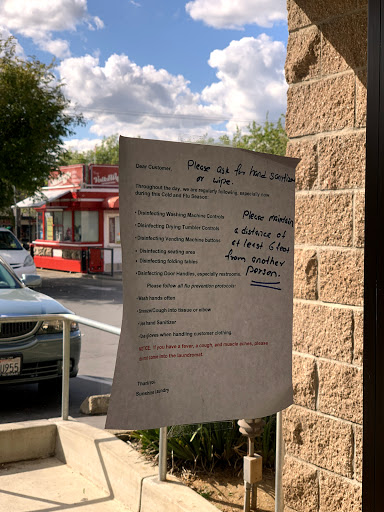 Dear Customer,
Please ask for hand sanitizer
or wipe.
Throughout the day, we are regularly following, especially now
during this Cold and Flu Season:
• Disinfecting Washing Machine Controls
• Disinfecting Drying Tumbler Controls
• Disinfecting Vending Machine buttons
• Disinfecting seating area
• Disinfecting folding tables
• Disinfecting Door Handles, especially restrooms.
Please maintain
a distance of
at least 6 feet
from another
person.
Please also follow all flu prevention protocols:
Wash hands often
Cough into tissue or elbow
Hand Sanitizer
Gloves when handling customer clothing.
NOTE: If you have a fever, a cough, and muscle aches, please
come into the laundromat.
Thanks!
Laundry